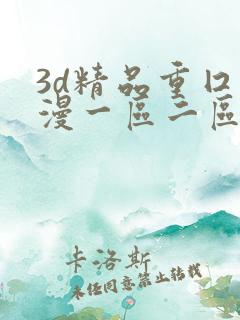 3d精品重口
漫一區二區
卡洛斯
未经同意禁止转载